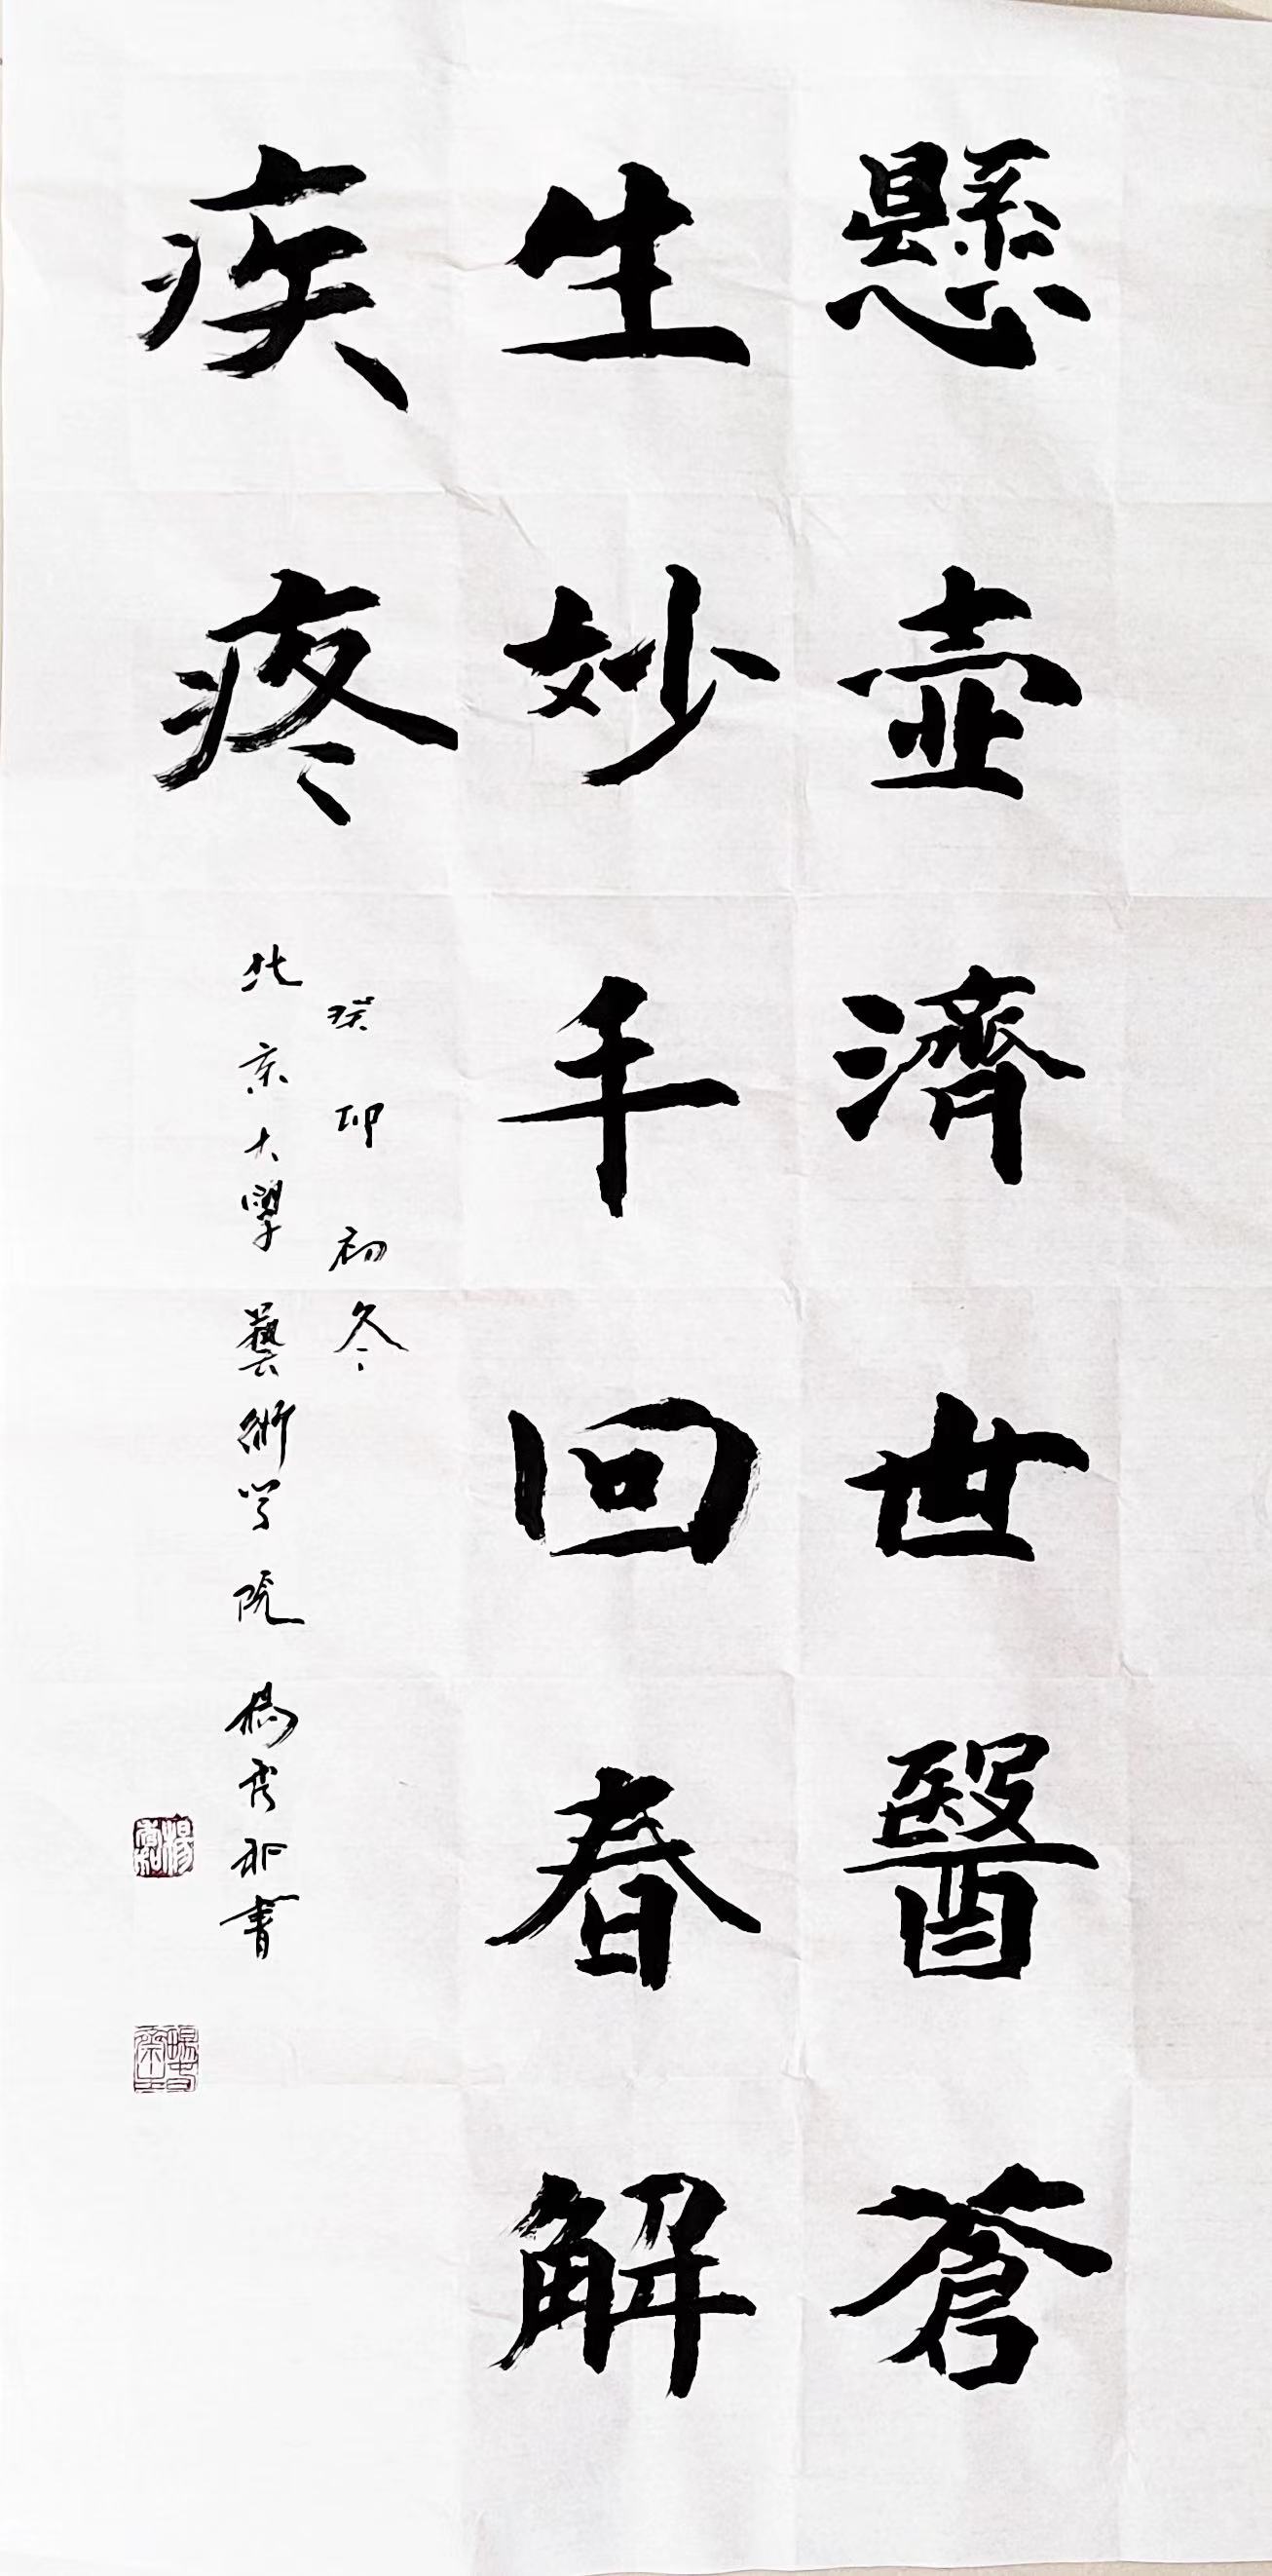 懸壺濟世醫蒼
生妙手回春解
疾疼
癸卯初冬
北京大學藝術学院楊秀和書